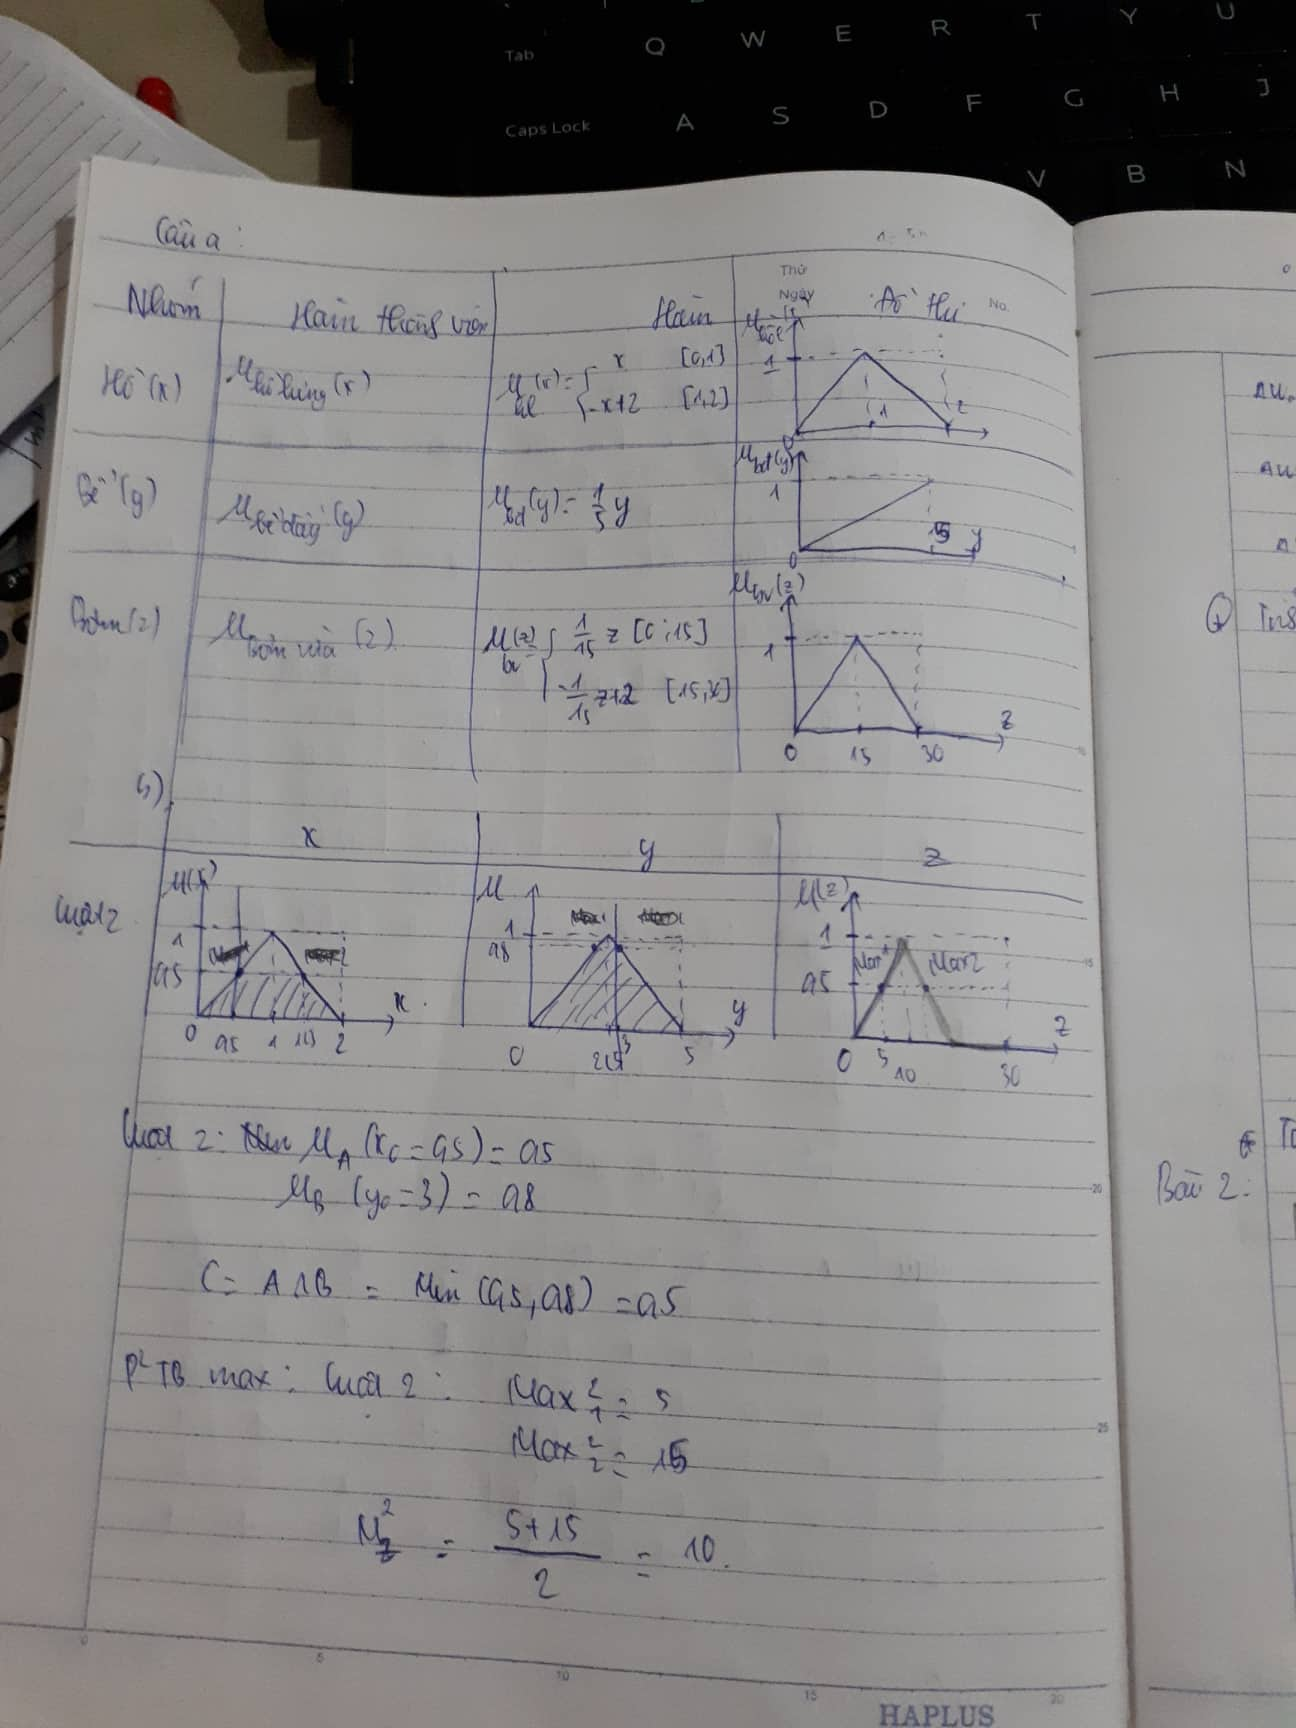 Tab Q W E R T Y U
Caps Lock A S D F G H J
V B N
Câu a:
Thứ
Ngày
No.
Nhóm Hàm thống vào Hàm Đồ thị
Hồ (x) μ hồ lưng (x) μ (x) = { x [0,1]
-x+2 [1,2]
1
0 1 2
Bể (y) μ bể đầy (y) μ bđ (y) = 1/5 y
μ bđ (y)
1
0 5 y
Bơm (z) μ Bơm vừa (z) μ (z) bv = { 1/15 z [0;15]
-1/15 z+2 [15,30]
μ bv (z)
1
0 15 30 z
b)
x y z
Luật 2
μ(x) 1 0,5 0 0,5 1 1,5 2 x
μ 1 0,8 0 2,5 3 5 y
μ(z) 1 0,5 Max1 Max2 0 5 10 30 z
Luật 2: μA (x0 = 0,5) = 0,5
μB (y0 = 3) = 0,8
C = A ∧ B = Min (0,5, 0,8) = 0,5
P² TB max: Luật 2: Max ²₁ = 5
Max ²₂ = 15
M²z = (5+15)/2 = 10.
Bài 2:
0 5 10 15 20
20
25
HAPLUS